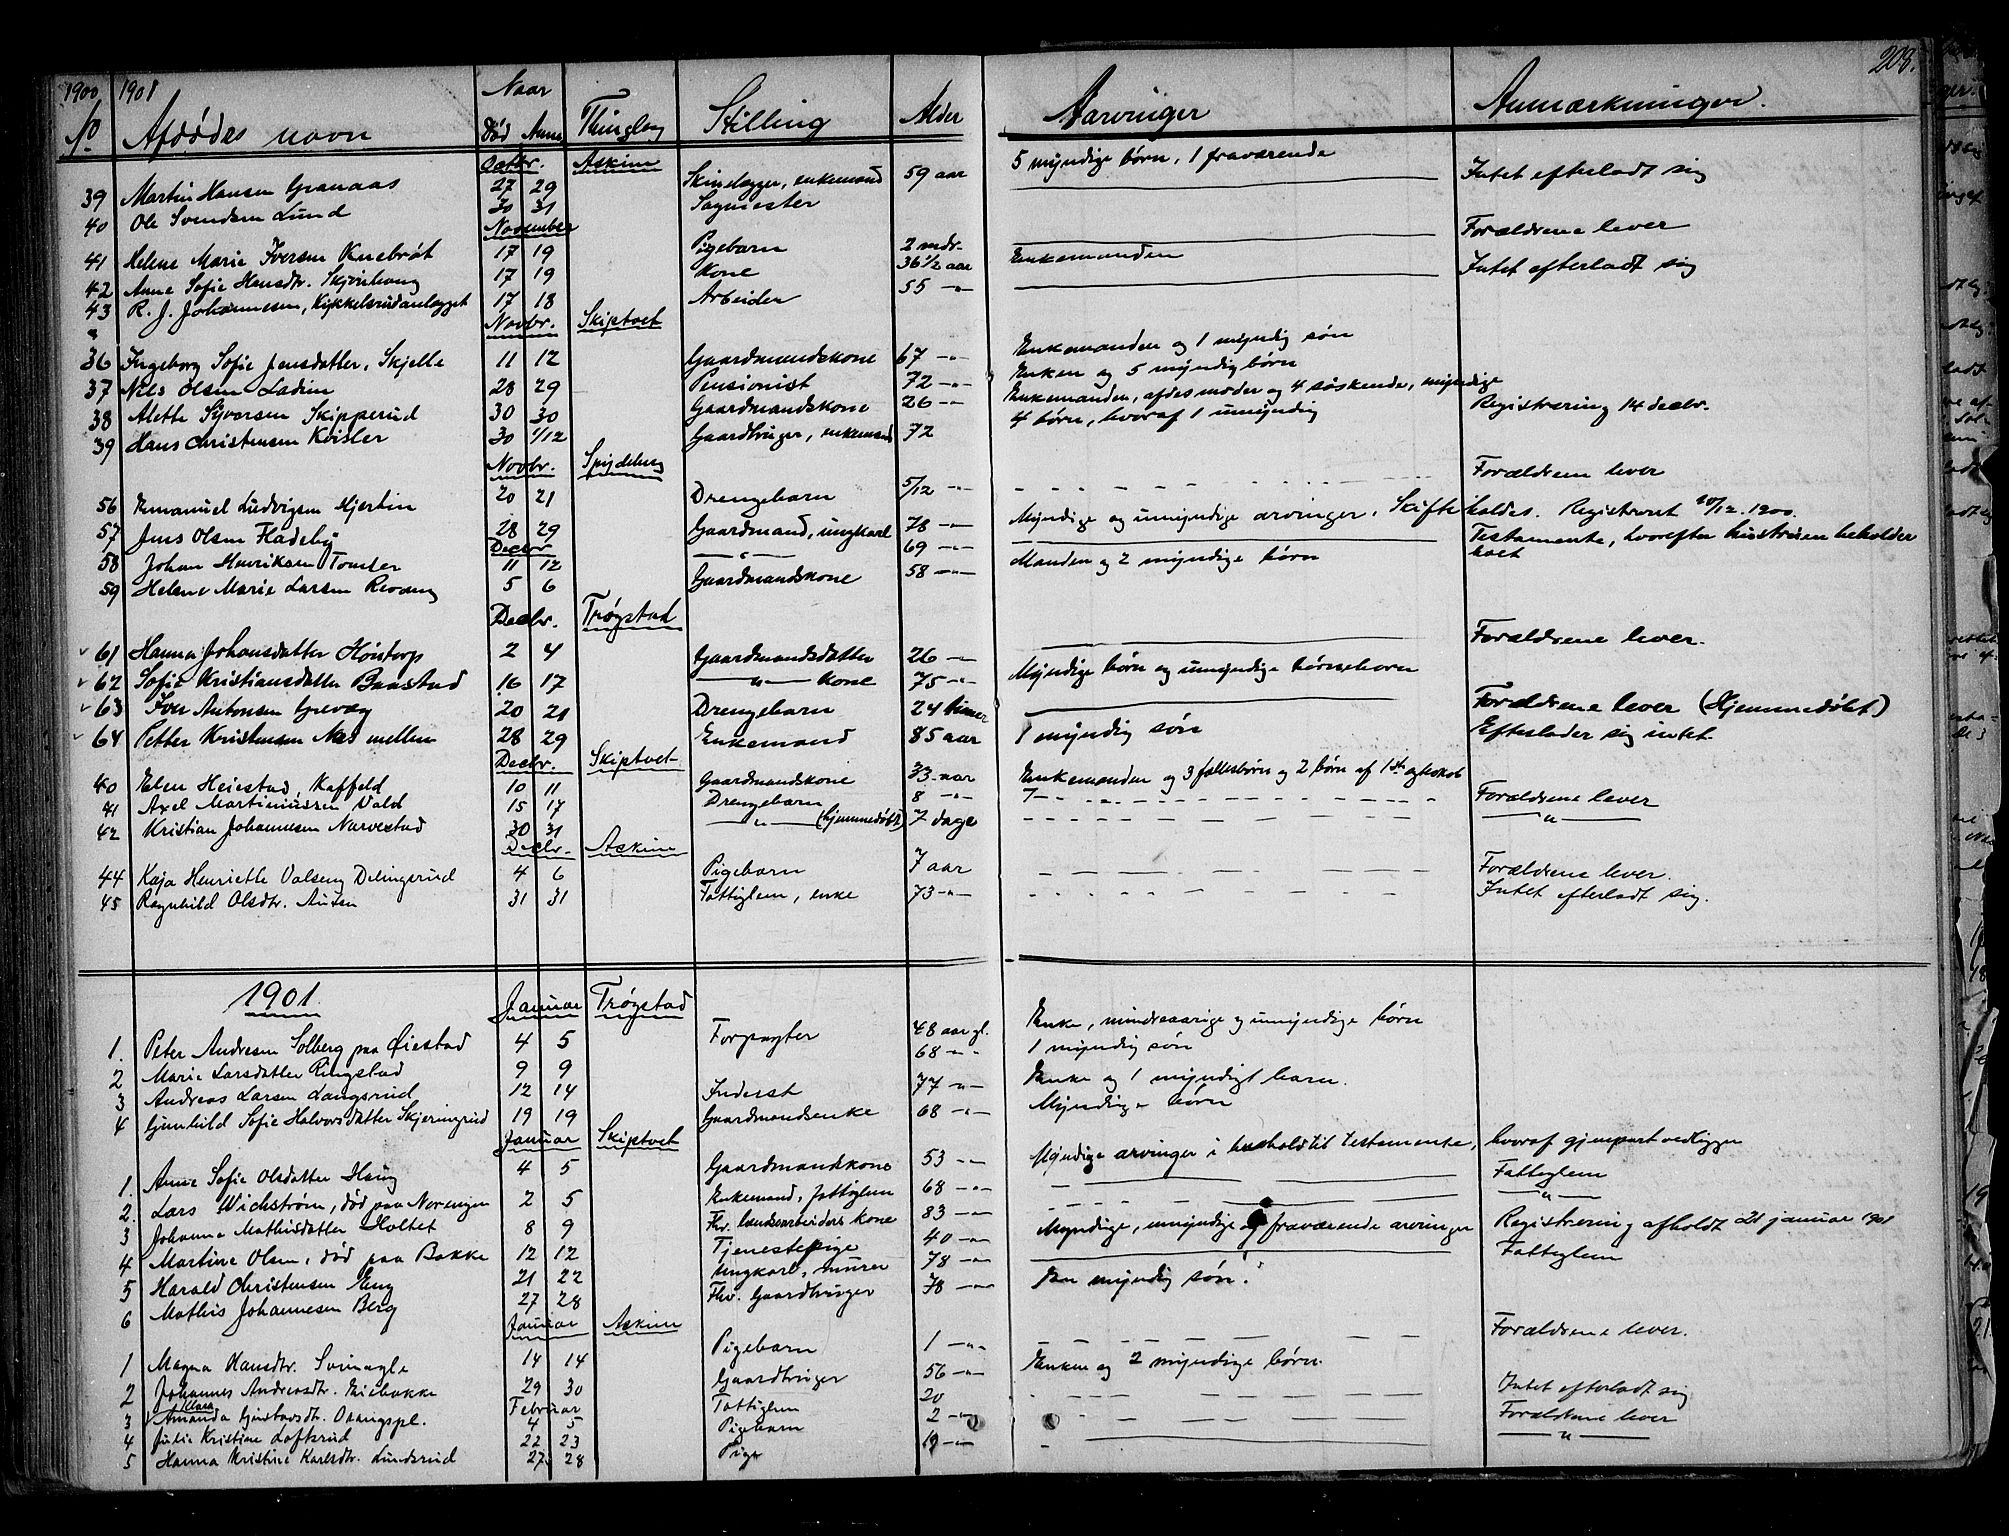 1900 1901 203.
No Afdødes navn Naar Død Anm. Thinglag Stilling Alder Aarvinger Anmærkninger.
Octbr. Askim
39 Martin Hansen Granaas 27 29 Skindlægger, enkemand 59 aar 5 myndige børn, 1 fraværende
40 Ole Svendsen Lund 30 31 Sagmester Intet efterladt sig
November
41 Helene Marie Iversen Knebrøt 17 19 Pigebarn 2 mdr. Forældrene lever
42 Anne Sofie Hansdtr. Skjørshaug 17 19 Kone 36 1/2 aar Enkemanden
43 R. J. Johannesen, Kykkelsrudanlægget 17 18 Arbeider 55 -"- Intet efterladt sig
Novbr. Skiptvet
36 Ingeborg Sofie Jensdatter, Skjelle 11 12 Gaardmandskone 67 -"- Enkemanden og 1 myndig søn
37 Nils Olsen Ladim 28 29 Pensionist 72 -"- Enken og 5 myndig børn
38 Alette Syversen Skipperud 30 30 Gaardmandskone 26 -"- Enkemanden, afdødes moder og 4 søskende, myndige
39 Hans Christensen Kvisler 30 1/12 Gaardbruger, enkemand 72 4 børn, hvoraf 1 umyndig Registrering 14 decbr.
Novbr. Spydeberg
56 Emanuel Ludvigsen Hjertin 20 21 Drengebarn 5/12 -"- Forældrene lever
57 Jens Olsen Fladeby 28 29 Gaardmand, ungkarl 78 -"- Myndige og umyndige arvinger. Skifte holdes. Registreret 20/12. 1900.
Decbr.
58 Johan Henriksen Tomter 11 12 -"- 69 -"- Testamente, hvorefter hustruen beholder boet
59 Helene Marie Larsen Revoug 5 6 Gaardmandskone 58 -"- Manden og 2 myndige børn
Decbr. Trøgstad
61 Hanna Johansdatter Høistorp 2 4 Gaardmandsdatter 26 -"- Forældrene lever.
62 Sofie Kristiansdatter Baastad 16 17 -"- kone 75 -"- Myndige børn og umyndige børnebørn
63 Iver Antonsen Grevæg 20 21 Drengebarn 24 timer Forældrene lever (Hjemmedøbt)
64 Petter Kristensen Næs mellem 28 29 Enkemand 85 aar 1 myndig søn Efterlader sig intet.
Decbr. Skiptvet
40 Elen Heiestad, Kaffeld 10 11 Gaardmandskone 33 aar Enkemanden og 3 fællesbørn og 2 børn af 1ste ægteskab
41 Axel Martiniussen Vold 15 17 Drengebarn 8 -"- Forældrene lever
42 Kristian Johannesen Narvestad 30 31 -"- (hjemmedøbt) 7 dage -"-
Decbr. Askim
44 Kaja Henriette Valseng Delingsrud 4 6 Pigebarn 7 aar Forældrene lever.
45 Ragnhild Olsdtr. Aulsen 31 31 Fattiglem, enke 73 -"- Intet efterladt sig.
1901. Januar Trøgstad
1. Peter Andresen Solberg paa Øiestad 4 5 Forpagter 48 aar gl. Enke, mindreaarige og umyndige børn
2 Marie Larsdatter Ringstad 9 9 68 " " 1 myndig søn
3 Andreas Larsen Langsrud 12 14 Inderst 77 -"- Enke og 1 myndigt barn.
4 Gunhild Sofie Halvorsdatter Skjeringrud 19 19 Gaardmandsenke 68 -"- Myndige børn
Januar Skiptvet
1. Anne Sofie Olsdatter Haug 4 5 Gaardmandskone 53 -"- Myndige arvinger i henhold til Testamente, hvoraf gjenpart vedligger
2. Lars Wichstrøm, død paa Norengen 2 5 Enkemand, fattiglem 68 -"- Fattiglem
3 Johanne Mathisdatter Holtet 8 9 Fhv. landarbeiders kone 83 -"- -"-
4 Martine Olsen, død paa Bakke 12 12 Tjenestepige 40 -"- Myndige, umyndige og fraværende arvinger Registrering afholdt 21 januar 1901
5 Harald Christensen Eng 21 22 Ungkarl, murer 78 -"- Fattiglem
6 Mathis Johannesen Berg 27 28 Fhv. Gaardbruger 78 -"- En myndig søn.
Januar Askim
1 Magna Hansdtr. Svinagle 14 14 Pigebarn 1 -"- Forældrene lever.
2 Johannes Andreasdtr. Eiebakke 29 30 Gaardbruger 56 -"- Enken og 2 myndige børn.
Februar
3 Amanda Klara Gustavsdt. Oraugspl. 4 5 Fattiglem 20 Intet efterladt sig
4 Julie Kristine Loftsrud 22 23 Pigebarn 2 -"- Forældrene lever
5 Hanna Kristine Karlsdtr. Lundsrud 27 28 Pige 19 -"- -"-